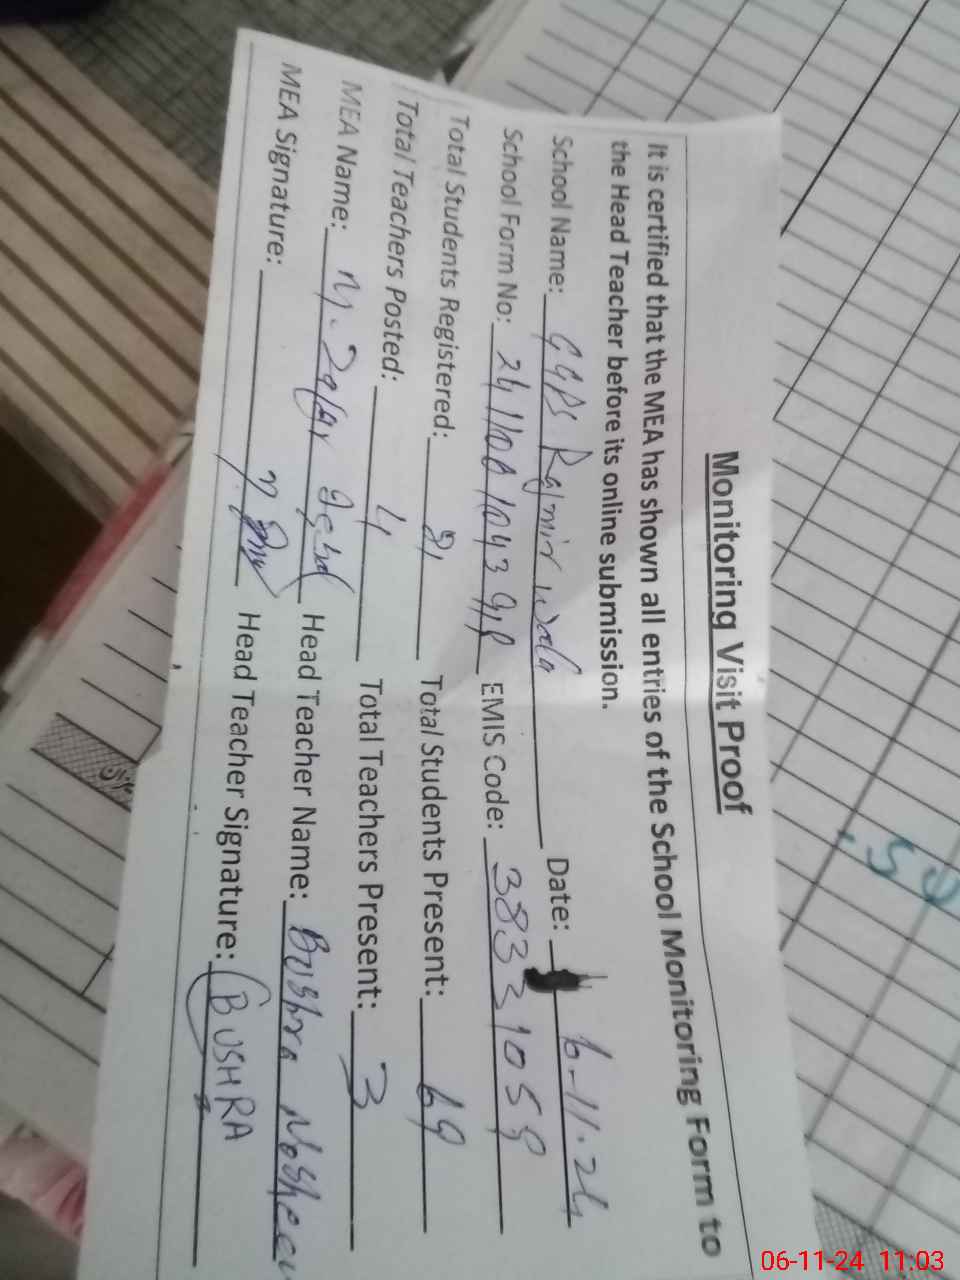 Monitoring Visit Proof
It is certified that the MEA has shown all entries of the School Monitoring Form to
the Head Teacher before its online submission.
School Name: GGPS Rajmir wala Date: 6-11-24
School Form No: EMIS Code:
Total Students Registered: Total Students Present: 69
Total Teachers Posted: 4 Total Teachers Present: 3
MEA Name: M. Zafar Head Teacher Name: Bushra Nosheen
MEA Signature: Head Teacher Signature: BUSHRA
06-11-24 11:03